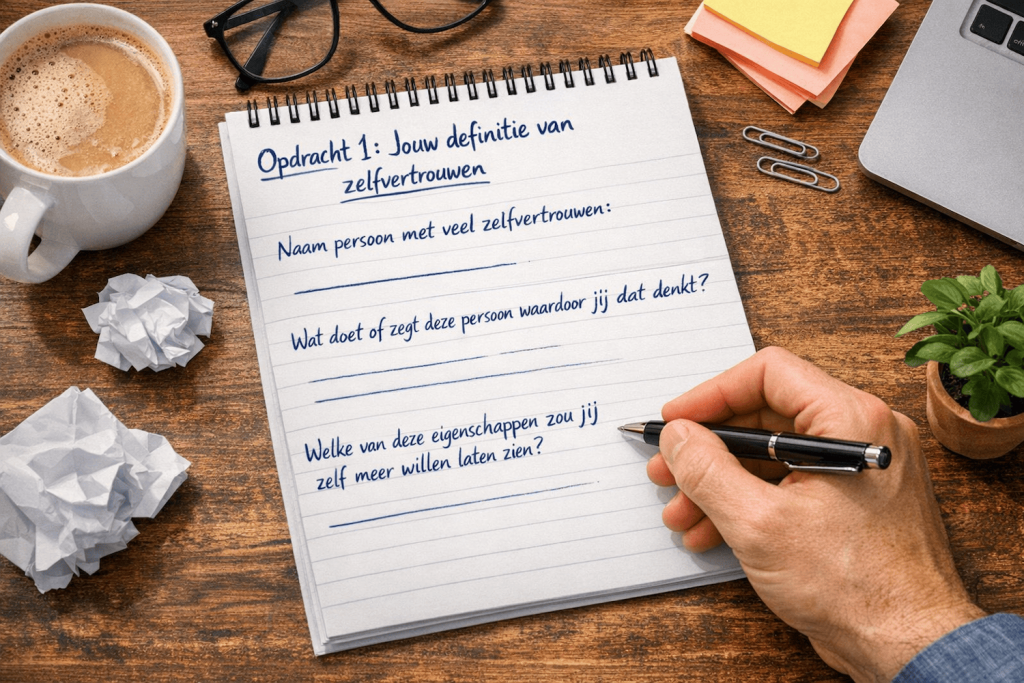 Opdracht 1: Jouw definitie van
zelfvertrouwen
Naam persoon met veel zelfvertrouwen:
Wat doet of zegt deze persoon waardoor jij dat denkt?
Welke van deze eigenschappen zou jij
zelf meer willen laten zien?